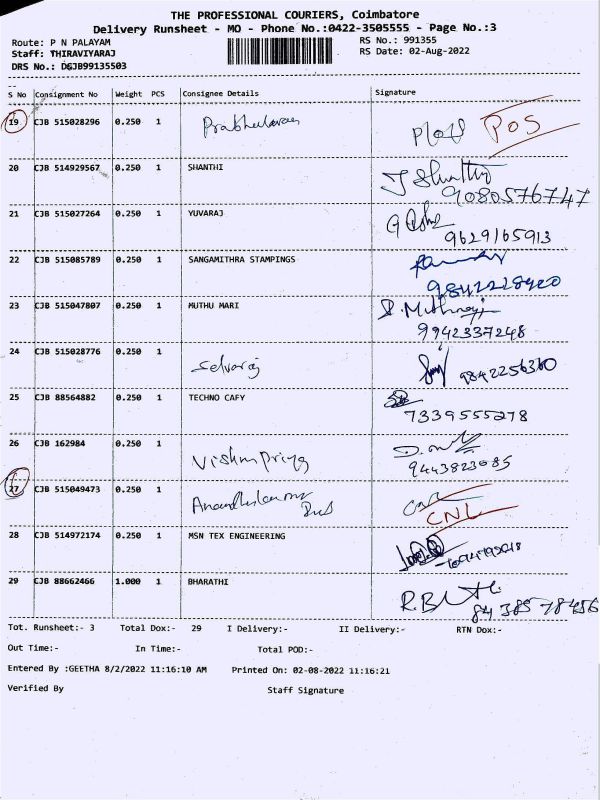 THE PROFESSIONAL COURIERS, Coimbatore
Delivery Runsheet - MO - Phone No.:0422-3505555 - Page No.:3
Route: P N PALAYAM RS No.: 991355
Staff: THIRAVIYARAJ RS Date: 02-Aug-2022
DRS No.: DGJB99135503
S No Consignment No Weight PCS Consignee Details Signature
19 CJB 515028296 0.250 1 POS
20 CJB 514929567 0.250 1 SHANTHI
9080576747
21 CJB 515027264 0.250 1 YUVARAJ
9629165913
22 CJB 515085789 0.250 1 SANGAMITHRA STAMPINGS
23 CJB 515047807 0.250 1 MUTHU MARI
9942337248
24 CJB 515028776 0.250 1 Selvaraj
25 CJB 88564882 0.250 1 TECHNO CAFY
7339555278
26 CJB 162984 0.250 1 Vishnu Priya
9443823085
27 CJB 515049473 0.250 1 CNL
28 CJB 514972174 0.250 1 MSN TEX ENGINEERING
29 CJB 88662466 1.000 1 BHARATHI
84 385 78456
Tot. Runsheet:- 3 Total Dox:- 29 I Delivery:- II Delivery:- RTN Dox:-
Out Time:- In Time:- Total POD:-
Entered By :GEETHA 8/2/2022 11:16:10 AM Printed On: 02-08-2022 11:16:21
Verified By Staff Signature